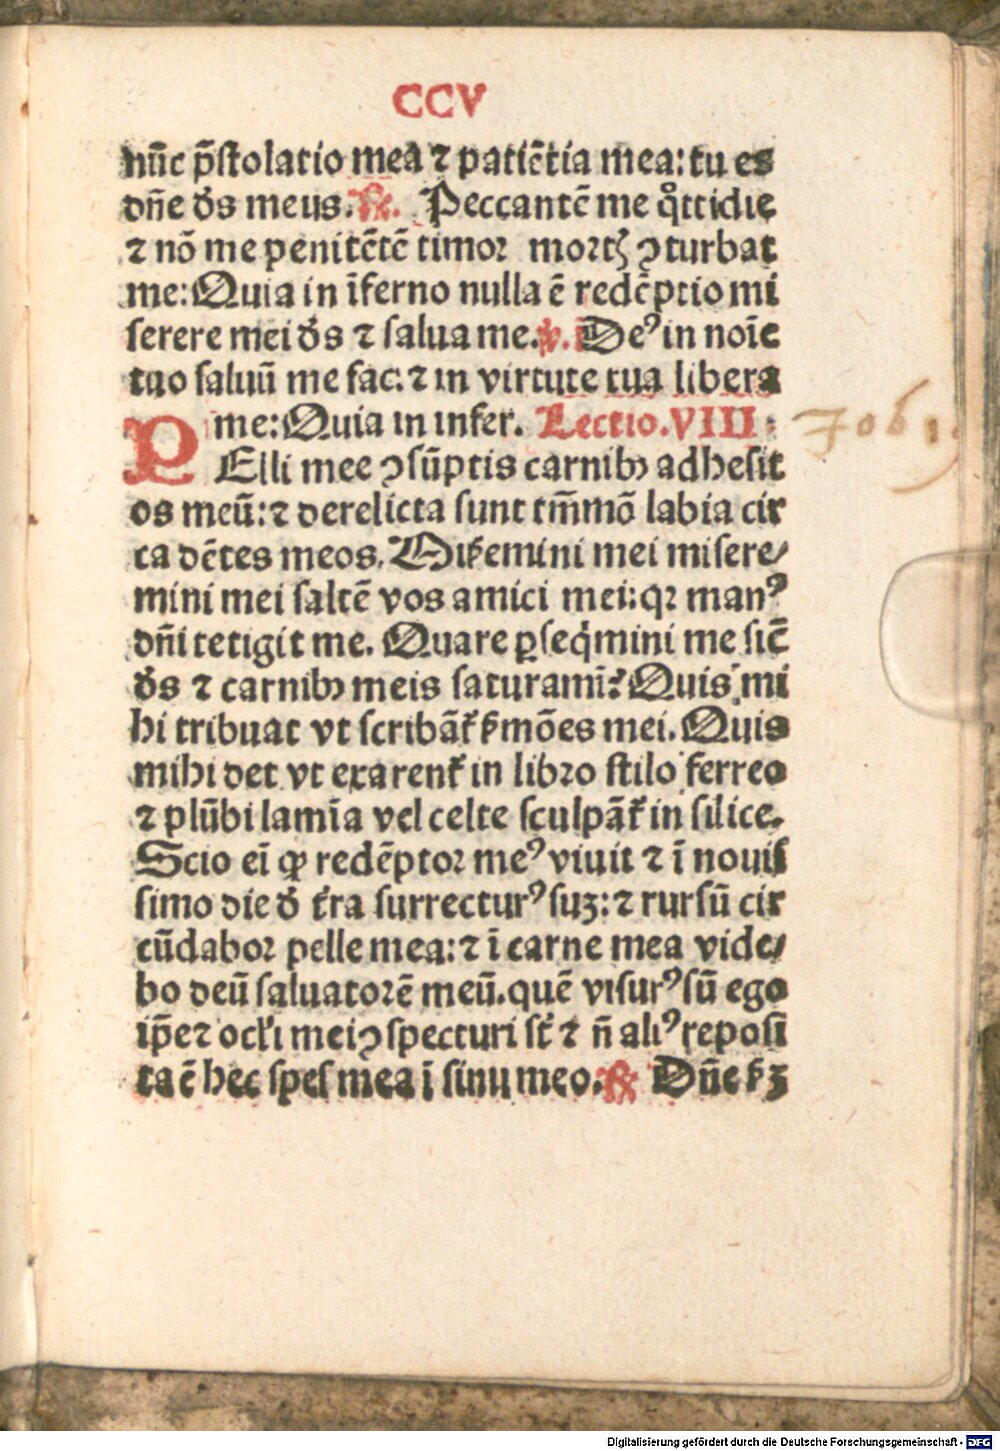 CCV
nūc p̄ſtolatio mea ⁊ patiētia mea: tu es
dñe ds̄ meus. ℟. Peccantē me qͦttidie
⁊ nō me penitētē timoꝛ moꝛtꝭ ꝯturbat
me: Quia in īferno nulla ē redēptio mi
ſerere mei ds̄ ⁊ ſalua me. ℣. Deꝰ in noīe
tuo ſaluū me fac. ⁊ in virtute tua libera
me: Quia in infer. Lectio. VIII. Job 19.
PElli mee ꝯſūptis carnibꝫ adheſit
os meū: ⁊ derelicta ſunt tm̄mō labia cir
ca dētes meos. Miſemini mei miſere⸗
mini mei ſaltē vos amici mei: qꝛ manꝰ
dñi tetigit me. Quare ꝑſeq̇mini me ſic̄
ds̄ ⁊ carnibꝫ meis ſaturamī? Quis mi
hi tribuat vt ſcribāt᷑ ẜmōes mei. Quis
mihi det vt exarent᷑ in libꝛo ſtilo ferreo
⁊ plūbi lamīa vel celte ſculpāt᷑ in ſilice.
Scio eī ꝙ redēptoꝛ meꝰ viuit ⁊ ī nouiſ
ſimo die d̄ t᷑ra ſurrecturꝰ ſuꝫ: ⁊ rurſū cir
cūdaboꝛ pelle mea: ⁊ ī carne mea vide⸗
bo deū ſaluatoꝛē meū. quē viſurꝰ ſū ego
ip̄e ⁊ ocl̓i mei ꝯſpecturi ſt̄ ⁊ ñ aliꝰ repoſi
ta ē hec ſpeſ mea ī ſinu meo. ℟ Dñe ẜꝫ
Digitalisierung gefördert durch die Deutsche Forschungsgemeinschaft - DFG